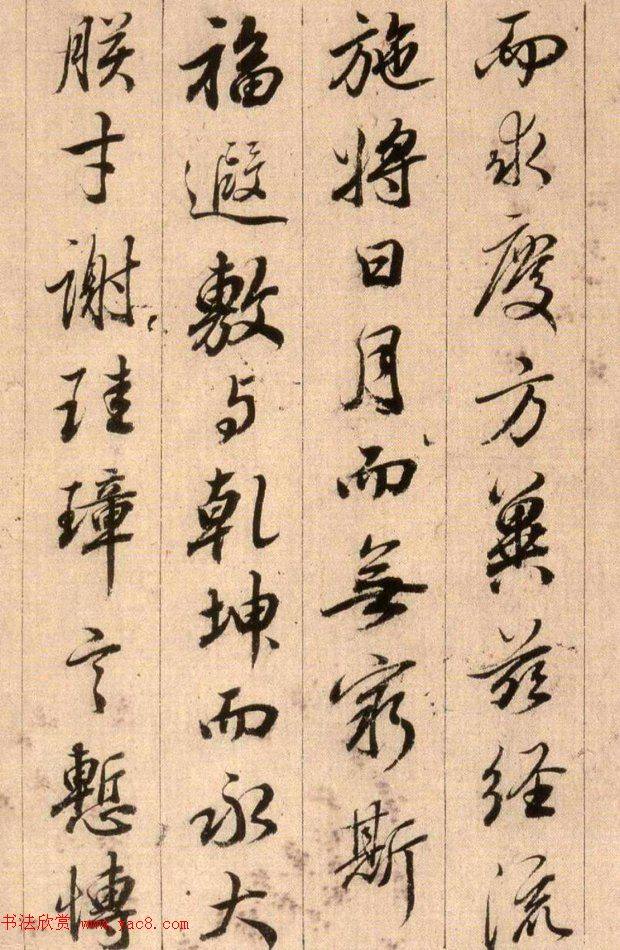 而求度方冀茲经流
施将日月而無窮斯
福遐敷与乾坤而永大
朕才謝珪璋言慙博
书法欣赏 www.yac8.com